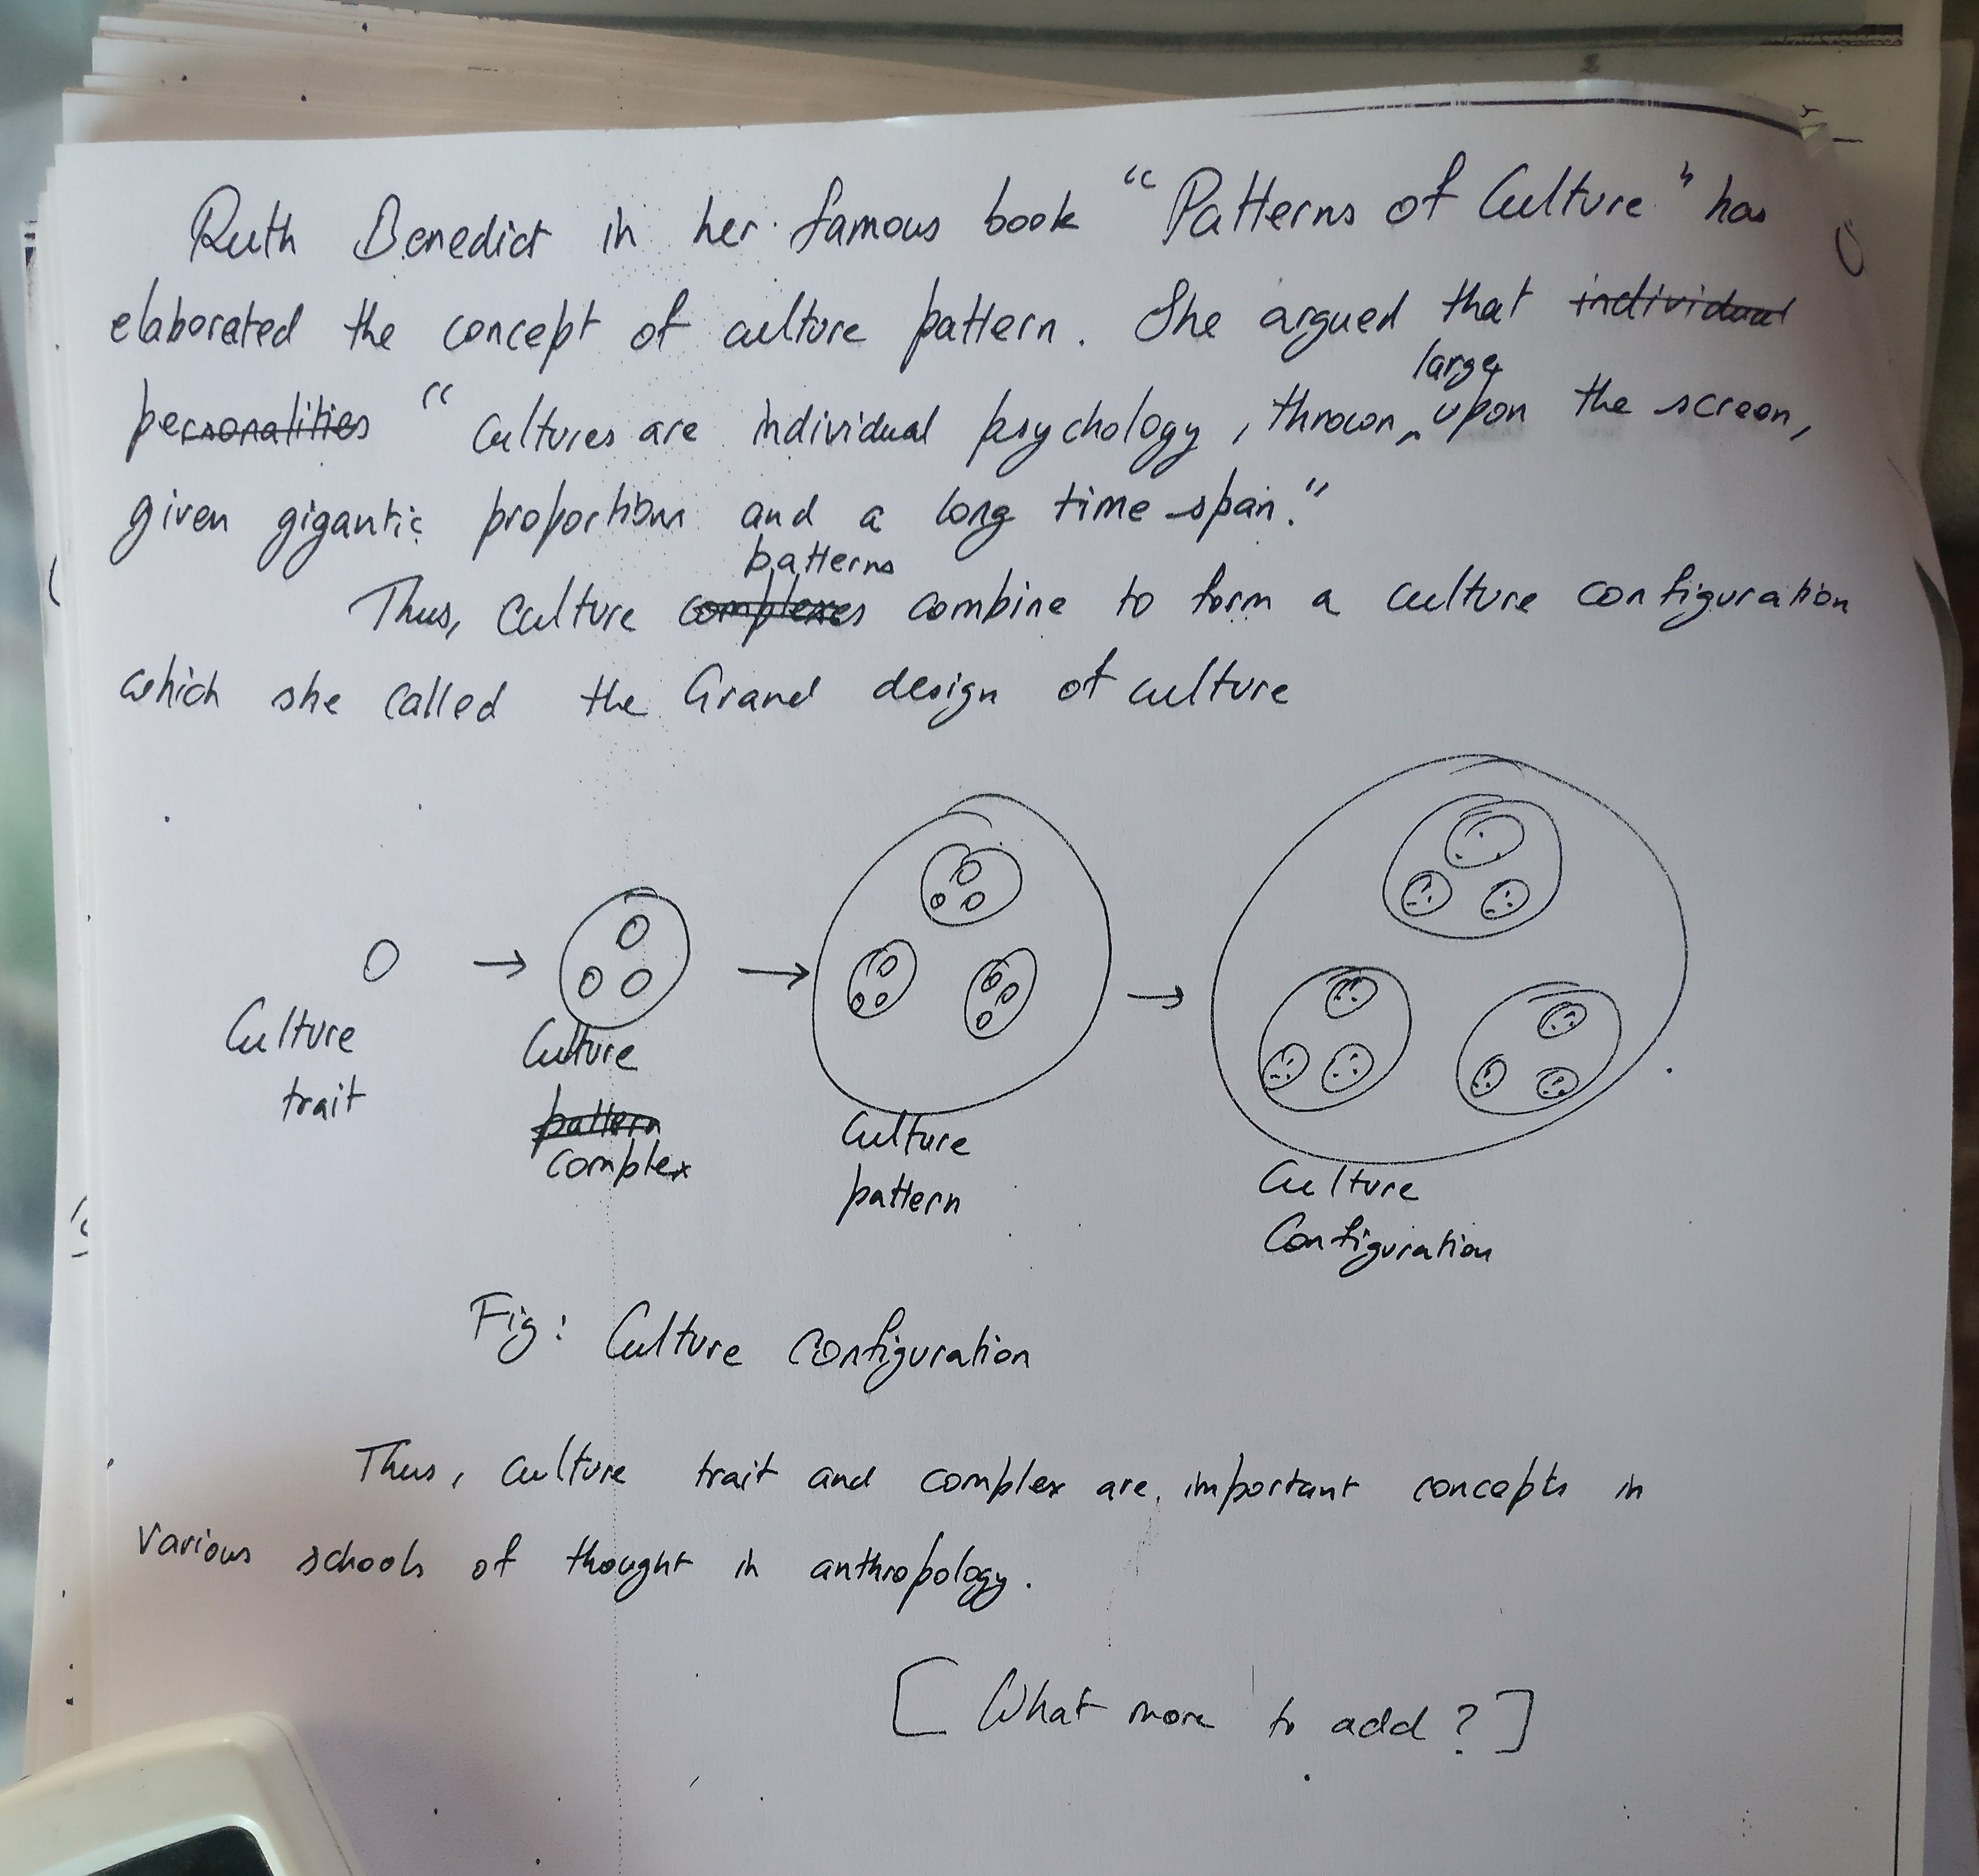 Ruth Benedict in her famous book "Patterns of Culture" has
elaborated the concept of culture pattern. She argued that individual
personalities "Cultures are individual psychology, thrown large upon the screen,
given gigantic proportions and a long time span."
Thus, Culture complexes patterns combine to form a culture configuration
which she called the Grand design of culture
Culture
trait
Culture
pattern
complex
Culture
pattern
Culture
Configuration
Fig: Culture configuration
Thus, culture trait and complex are important concepts in
various schools of thought in anthropology.
[What more to add?]